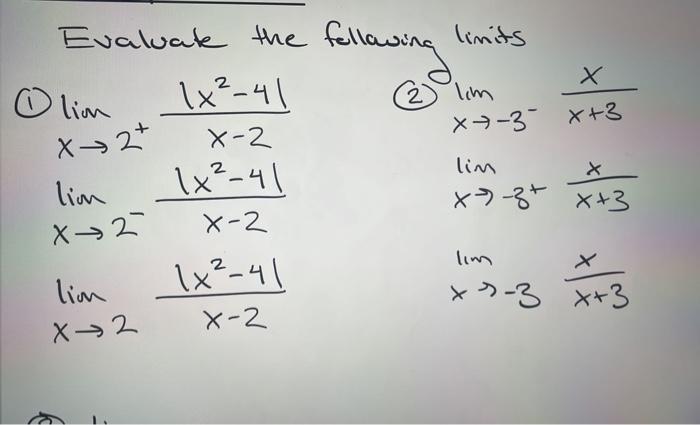 Evaluate the following limits
① lim x→2⁺ |x²-4| / x-2
lim x→2⁻ |x²-4| / x-2
lim x→2 |x²-4| / x-2
② lim x→-3⁻ x / x+3
lim x→-3⁺ x / x+3
lim x→-3 x / x+3